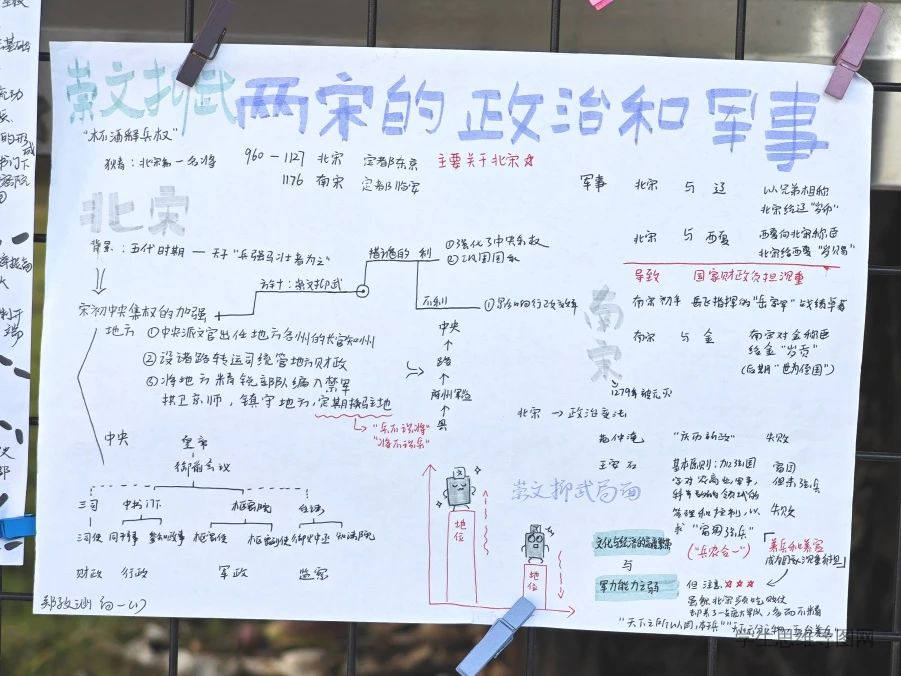 崇文抑武 两宋的政治和军事
"杯酒释兵权"
狄青：北宋第一名将
960—1127 北宋 定都东京 主要关于北宋
1176 南宋 定都临安
军事 北宋 与 辽 以兄弟相称
北宋给辽"岁币"
北宋 与 西夏 西夏向北宋称臣
北宋给西夏"岁赐"
导致 国家财政负担沉重
南宋初年 岳飞指挥的"岳家军"战绩卓著
南宋 与 金 南宋对金称臣
给金"岁贡"
(后期"世为侄国")
南宋
1279年被元灭
北宋
背景：五代时期 — 天子"兵强马壮者为之"
方针：崇文抑武
措施的 利
①强化了中央集权
②巩固国私
不利
宋初中央集权的加强
地方 ①中央派文官出任地方各州的长官知州
②设诸路转运司统管地方财政
③将地方精锐部队编入禁军
拱卫京师，镇守地方，定期换驻地
"兵不识将"
"将不识兵"
中央
路
府州军监
县
中央 皇帝
御前会议
三司 中书门下 枢密院 台谏
三司使 同平章事 参知政事 枢密使 枢密副使 御史中丞 知谏院
财政 行政 军政 监察
北宋 → 政治变法
范仲淹 "庆历新政" 失败
王安石 基本原则：加强国
富国
但未强兵
失败
管理和控制，以
求"富国强兵"
("兵农合一")
崇文抑武局面
地位
地位
文化与经济的高度繁荣
与
军力能力之弱
募兵和养官
成为国家沉重负担
但 注意
虽然北宋频吃败仗
学生思维导图网